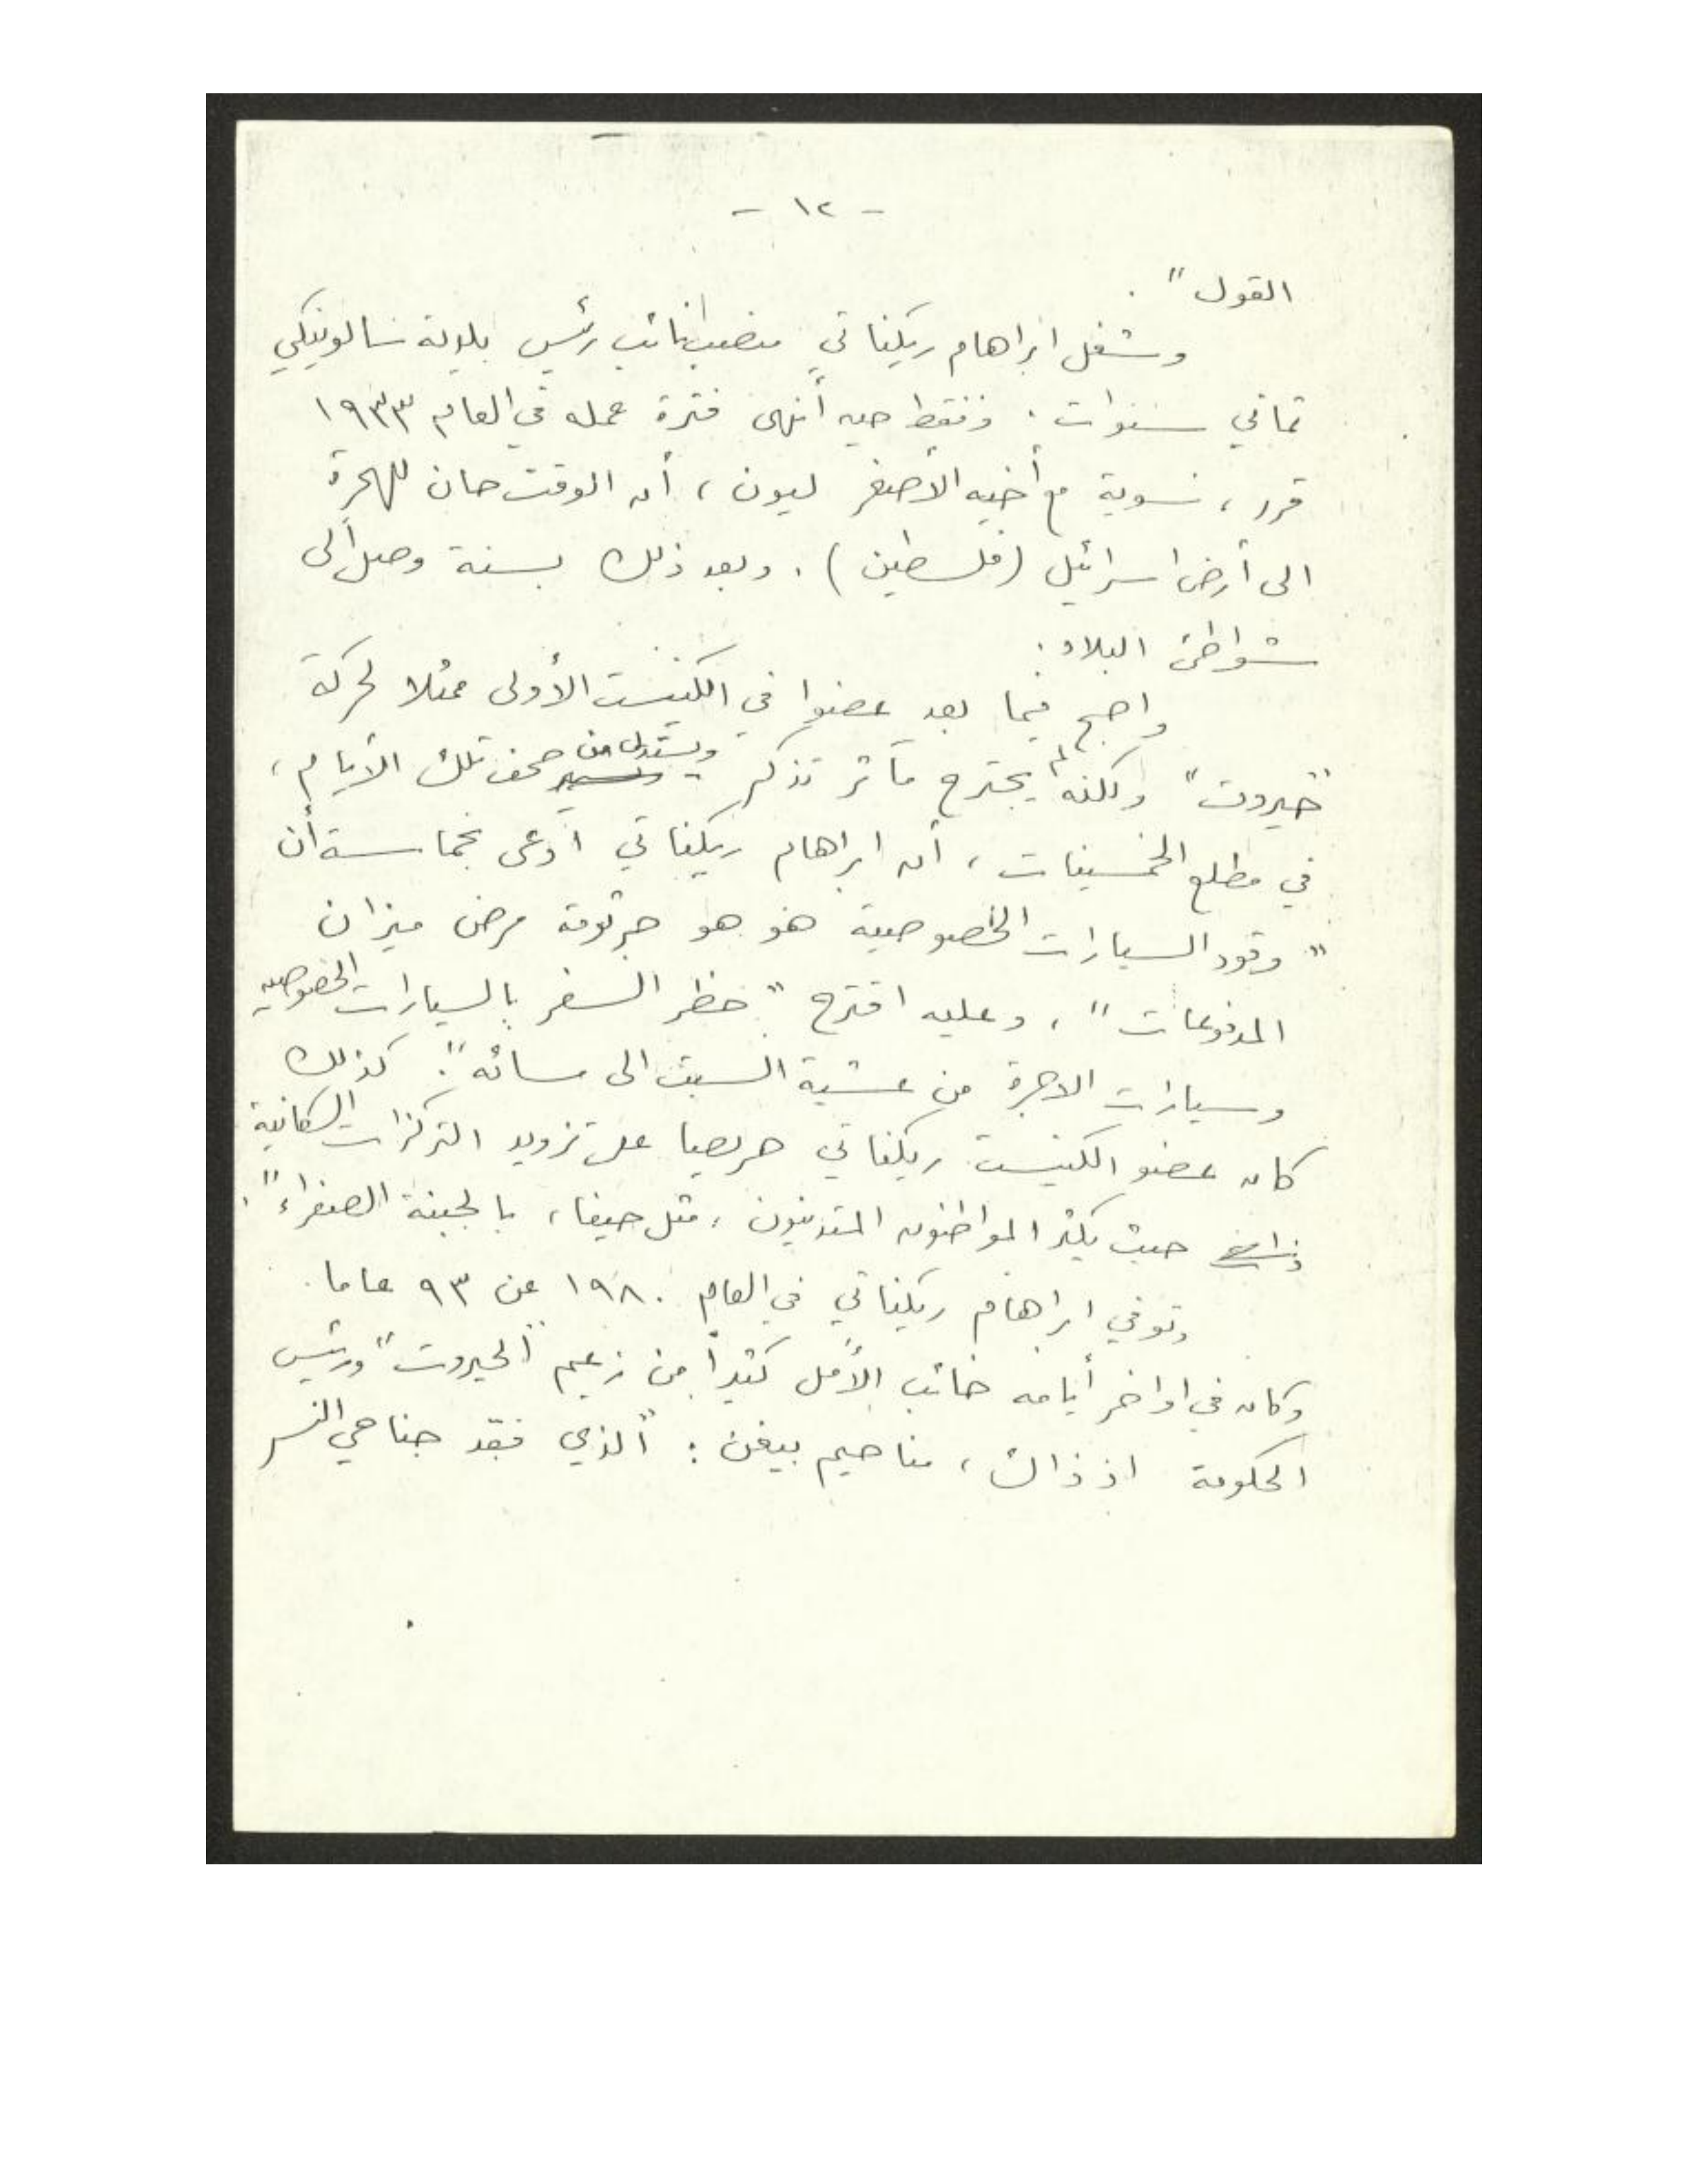 - ١٢ -
القول".
وشغل ابراهام ريكناتي منصب نائب رئيس بلدية سالونيكي
ثماني سنوات. وفقط حين أنهى فترة عمله في العام ١٩٣٣
قرر، سوية مع أخيه الأصغر ليون، أن الوقت حان للهجرة
الى أرض اسرائيل (فلسطين). وبعد ذلك بسنة وصل الى
شواطئ البلاد.
واصبح فيما بعد عضوا في الكنيست الأولى ممثلا لحركة
"حيروت" ولكنه لم يجترح مآثر تذكر ويستدل من صحف تلك الأيام،
في مطلع الخمسينات، أن ابراهام ريكناتي ادعى بحماسة أن
"وقود السيارات الخصوصية هو هو جرثومة مرض ميزان
المدفوعات"، وعليه اقترح "حظر السفر بالسيارات الخصوصيه
وسيارات الاجرة من عشية السبت الى مسائه". كذلك
كان عضو الكنيست ريكناتي حريصا على تزويد التركزات السكانية
حيث يكثر المواطنون المتدينون، مثل حيفا، بالجبنة الصفراء".
وتوفي ابراهام ريكناتي في العام ١٩٨٠ عن ٩٣ عاما.
وكان في اواخر أيامه خائب الأمل كثيراً من زعيم "الحيروت" ورئيس
الحكومة اذ ذاك، مناحيم بيغن: "الذي فقد جناحي النسر